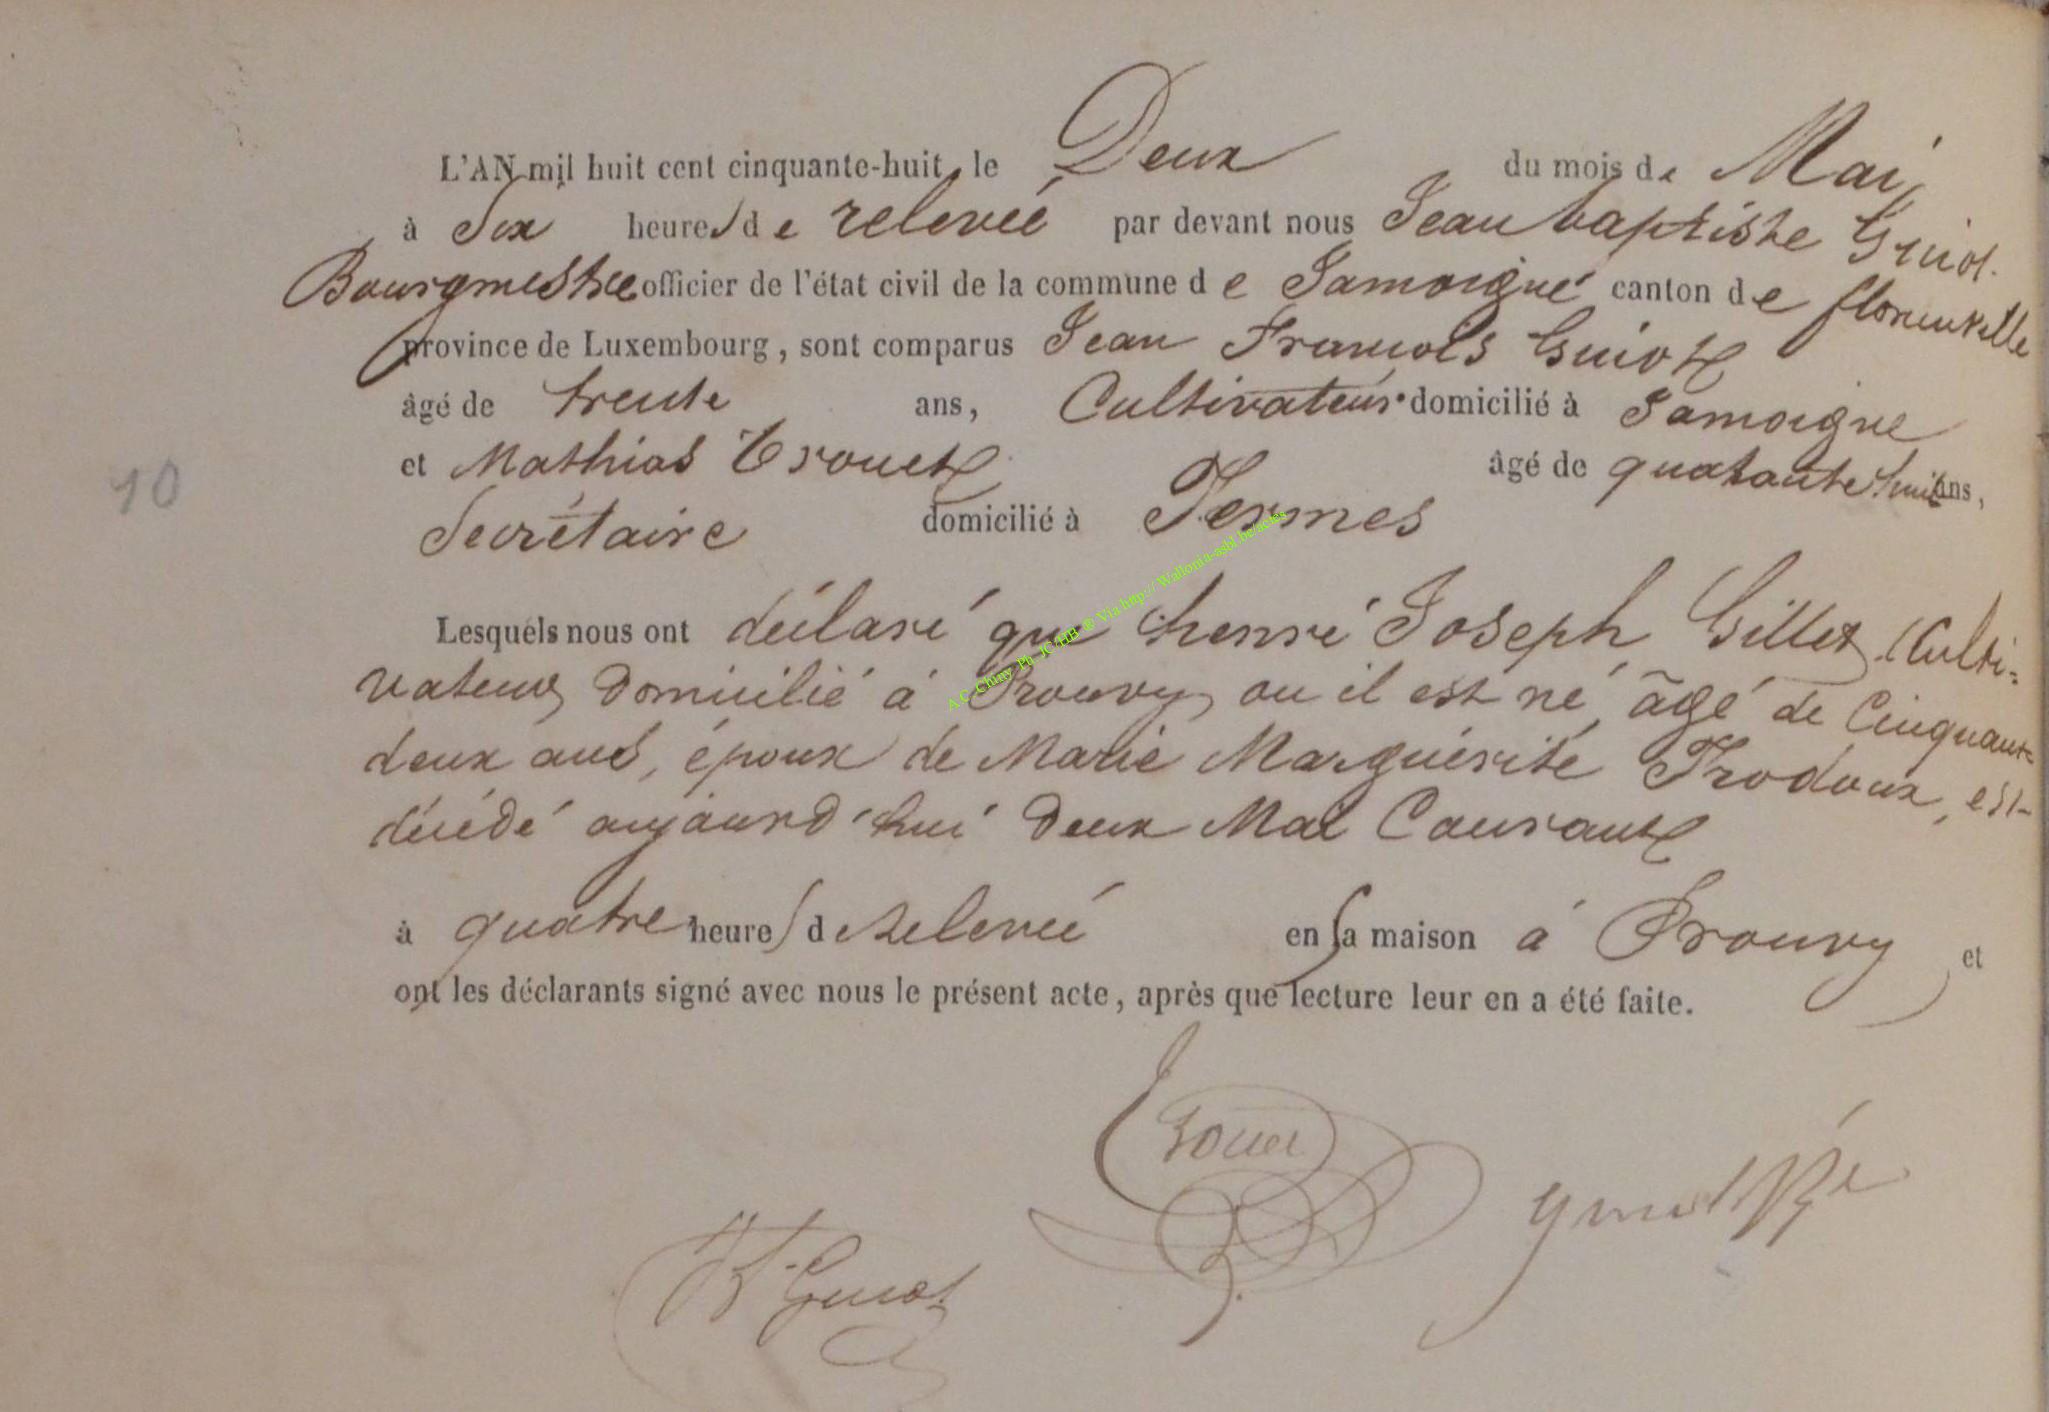 L'AN mil huit cent cinquante-huit, le Deux du mois de Mai,
à Six heures de relevée par devant nous Jean baptiste Guiot.
Bourgmestre officier de l'état civil de la commune de Jamoigne canton de florenville
province de Luxembourg, sont comparus Jean François Guiot
âgé de trente ans, Cultivateur domicilié à Jamoigne
et Mathias Trouet âgé de quarante huit ans,
10
Secrétaire domicilié à Termes
Lesquels nous ont déclaré que henri Joseph Gillet, Culti=
vateur, domicilié à Prouvy, ou il est né, âgé de Cinquante
deux ans, époux de Marie Marguérite Trodoux, est
décédé aujourd'hui deux Mai Courant
à quatre heures de Relevée en sa maison à Prouvy et
ont les déclarants signé avec nous le présent acte, après que lecture leur en a été faite.
A.C. Chiny Ph. JC/HB ® Via http://Wallonia-asbl.be/actes
Trouet
Guiot